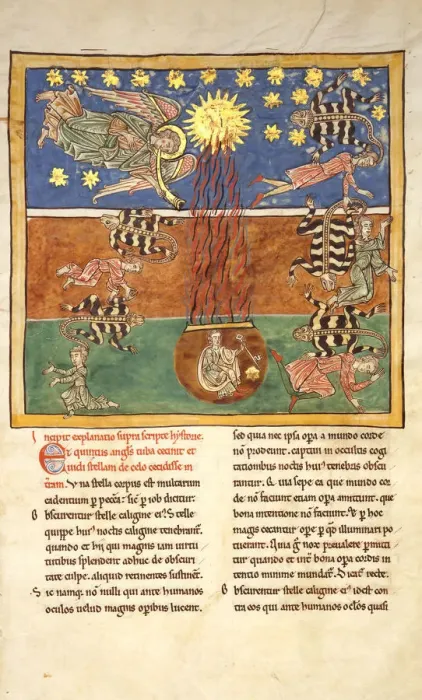 Incipit explanatio supra scripte hystorie.
Et quintus angls tuba cecinit et
uidi stellam de celo cecidisse in
tram. Una stella corpus est multarum
cadentium p peccā. sic p iob dicitur.
Obscurentur stelle caligine ei. Stelle
quippe hui noctis caligine tenebrant.
quando et hii qui magnis iam uirtu
tibus splendent adhuc de obscuri
tate culpe. aliquid retinentes sustinēt.
Sic namq. nōnulli qui ante humanos
oculos uelud magnis opibus lucent.
sed quia nec ipsa opa a mundo corde
nō prodeunt. captiui in occultis cogi
tationibus noctis hui tenebris obscu
rantur. Qui sepe ea que mundo cor
de nō faciunt etiam opa amittunt. que
bona intentione nō faciunt. & p hoc
magis cecantur ope. p qd illuminari po
tuerant. Quia g nox preualere pmitti
tur quando et int bona opa cordis in
tentio minime mundat. Dicat recte.
Obscurentur stelle caligine ei id est con
tra eos qui ante humanos oclos quasi